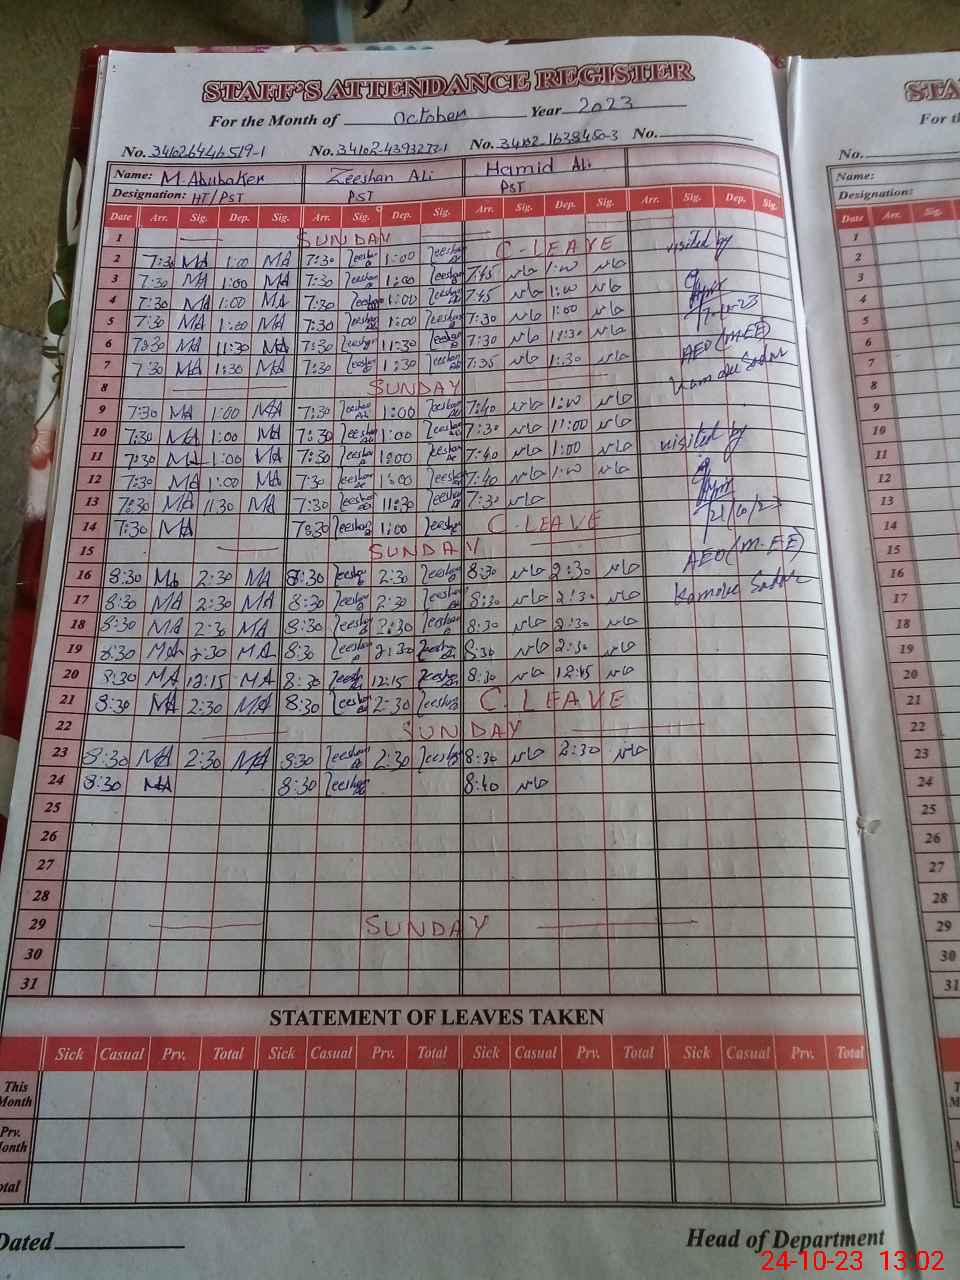 STAFF'S ATTENDANCE REGISTER
For the Month of October Year 2023
No. No. No. No.
Name: M. Abubaker Zeeshan Ali Hamid Ali
Designation: HT/PST PST PST
Date Arr. Sig. Dep. Sig. Arr. Sig. Dep. Sig. Arr. Sig. Dep. Sig. Arr. Sig. Dep. Sig.
1 SUNDAY
2 7:30 MA 1:00 MA 7:30 Zeeshan 1:00 Zeeshan C-LEAVE visited by
3 7:30 MA 1:00 MA 7:30 Zeeshan 1:00 Zeeshan 7:45 1:00
4 7:30 MA 1:00 MA 7:30 Zeeshan 1:00 Zeeshan 7:45 1:00
5 7:30 MA 1:00 MA 7:30 Zeeshan 1:00 Zeeshan 7:30 1:00
6 7:30 MA 11:30 MA 7:30 Zeeshan 11:30 Zeeshan 7:30 11:30 AEO (M-EE)
7 7:30 MA 1:30 MA 7:30 Zeeshan 1:30 Zeeshan 7:35 1:30 Kamoke Sadar
8 SUNDAY
9 7:30 MA 1:00 MA 7:30 Zeeshan 1:00 Zeeshan 7:40 1:00
10 7:30 MA 1:00 MA 7:30 Zeeshan 1:00 Zeeshan 7:30 11:00
11 7:30 MA 1:00 MA 7:30 Zeeshan 1:00 Zeeshan 7:40 1:00 visited by
12 7:30 MA 1:00 MA 7:30 Zeeshan 1:00 Zeeshan 7:40 1:00
13 7:30 MA 11:30 MA 7:30 Zeeshan 11:30 Zeeshan 7:30
14 7:30 MA 7:30 Zeeshan 1:00 Zeeshan C-LEAVE
15 SUNDAY AEO (M-EE)
16 8:30 MA 2:30 MA 8:30 Zeeshan 2:30 Zeeshan 8:30 2:30 Kamoke Sadar
17 8:30 MA 2:30 MA 8:30 Zeeshan 2:30 Zeeshan 8:30 2:30
18 8:30 MA 2:30 MA 8:30 Zeeshan 2:30 Zeeshan 8:30 2:30
19 8:30 MA 2:30 MA 8:30 Zeeshan 2:30 Zeeshan 8:30 2:30
20 8:30 MA 12:15 MA 8:30 Zeeshan 12:15 Zeeshan 8:30 12:15
21 8:30 MA 2:30 MA 8:30 Zeeshan 2:30 Zeeshan C.LEAVE
22 SUNDAY
23 8:30 MA 2:30 MA 8:30 Zeeshan 2:30 Zeeshan 8:30 2:30
24 8:30 MA 8:30 Zeeshan 8:40
25
26
27
28
29 SUNDAY
30
31
STATEMENT OF LEAVES TAKEN
Sick Casual Prv. Total Sick Casual Prv. Total Sick Casual Prv. Total Sick Casual Prv. Total
This
Month
Prv.
Month
Total
Dated Head of Department
STA
For th
No.
Name:
Designation:
Date Arr. Sig. Dep. Sig.
1
2
3
4
5
6
7
8
9
10
11
12
13
14
15
16
17
18
19
20
21
22
23
24
25
26
27
28
29
30
31
24-10-23 13:02